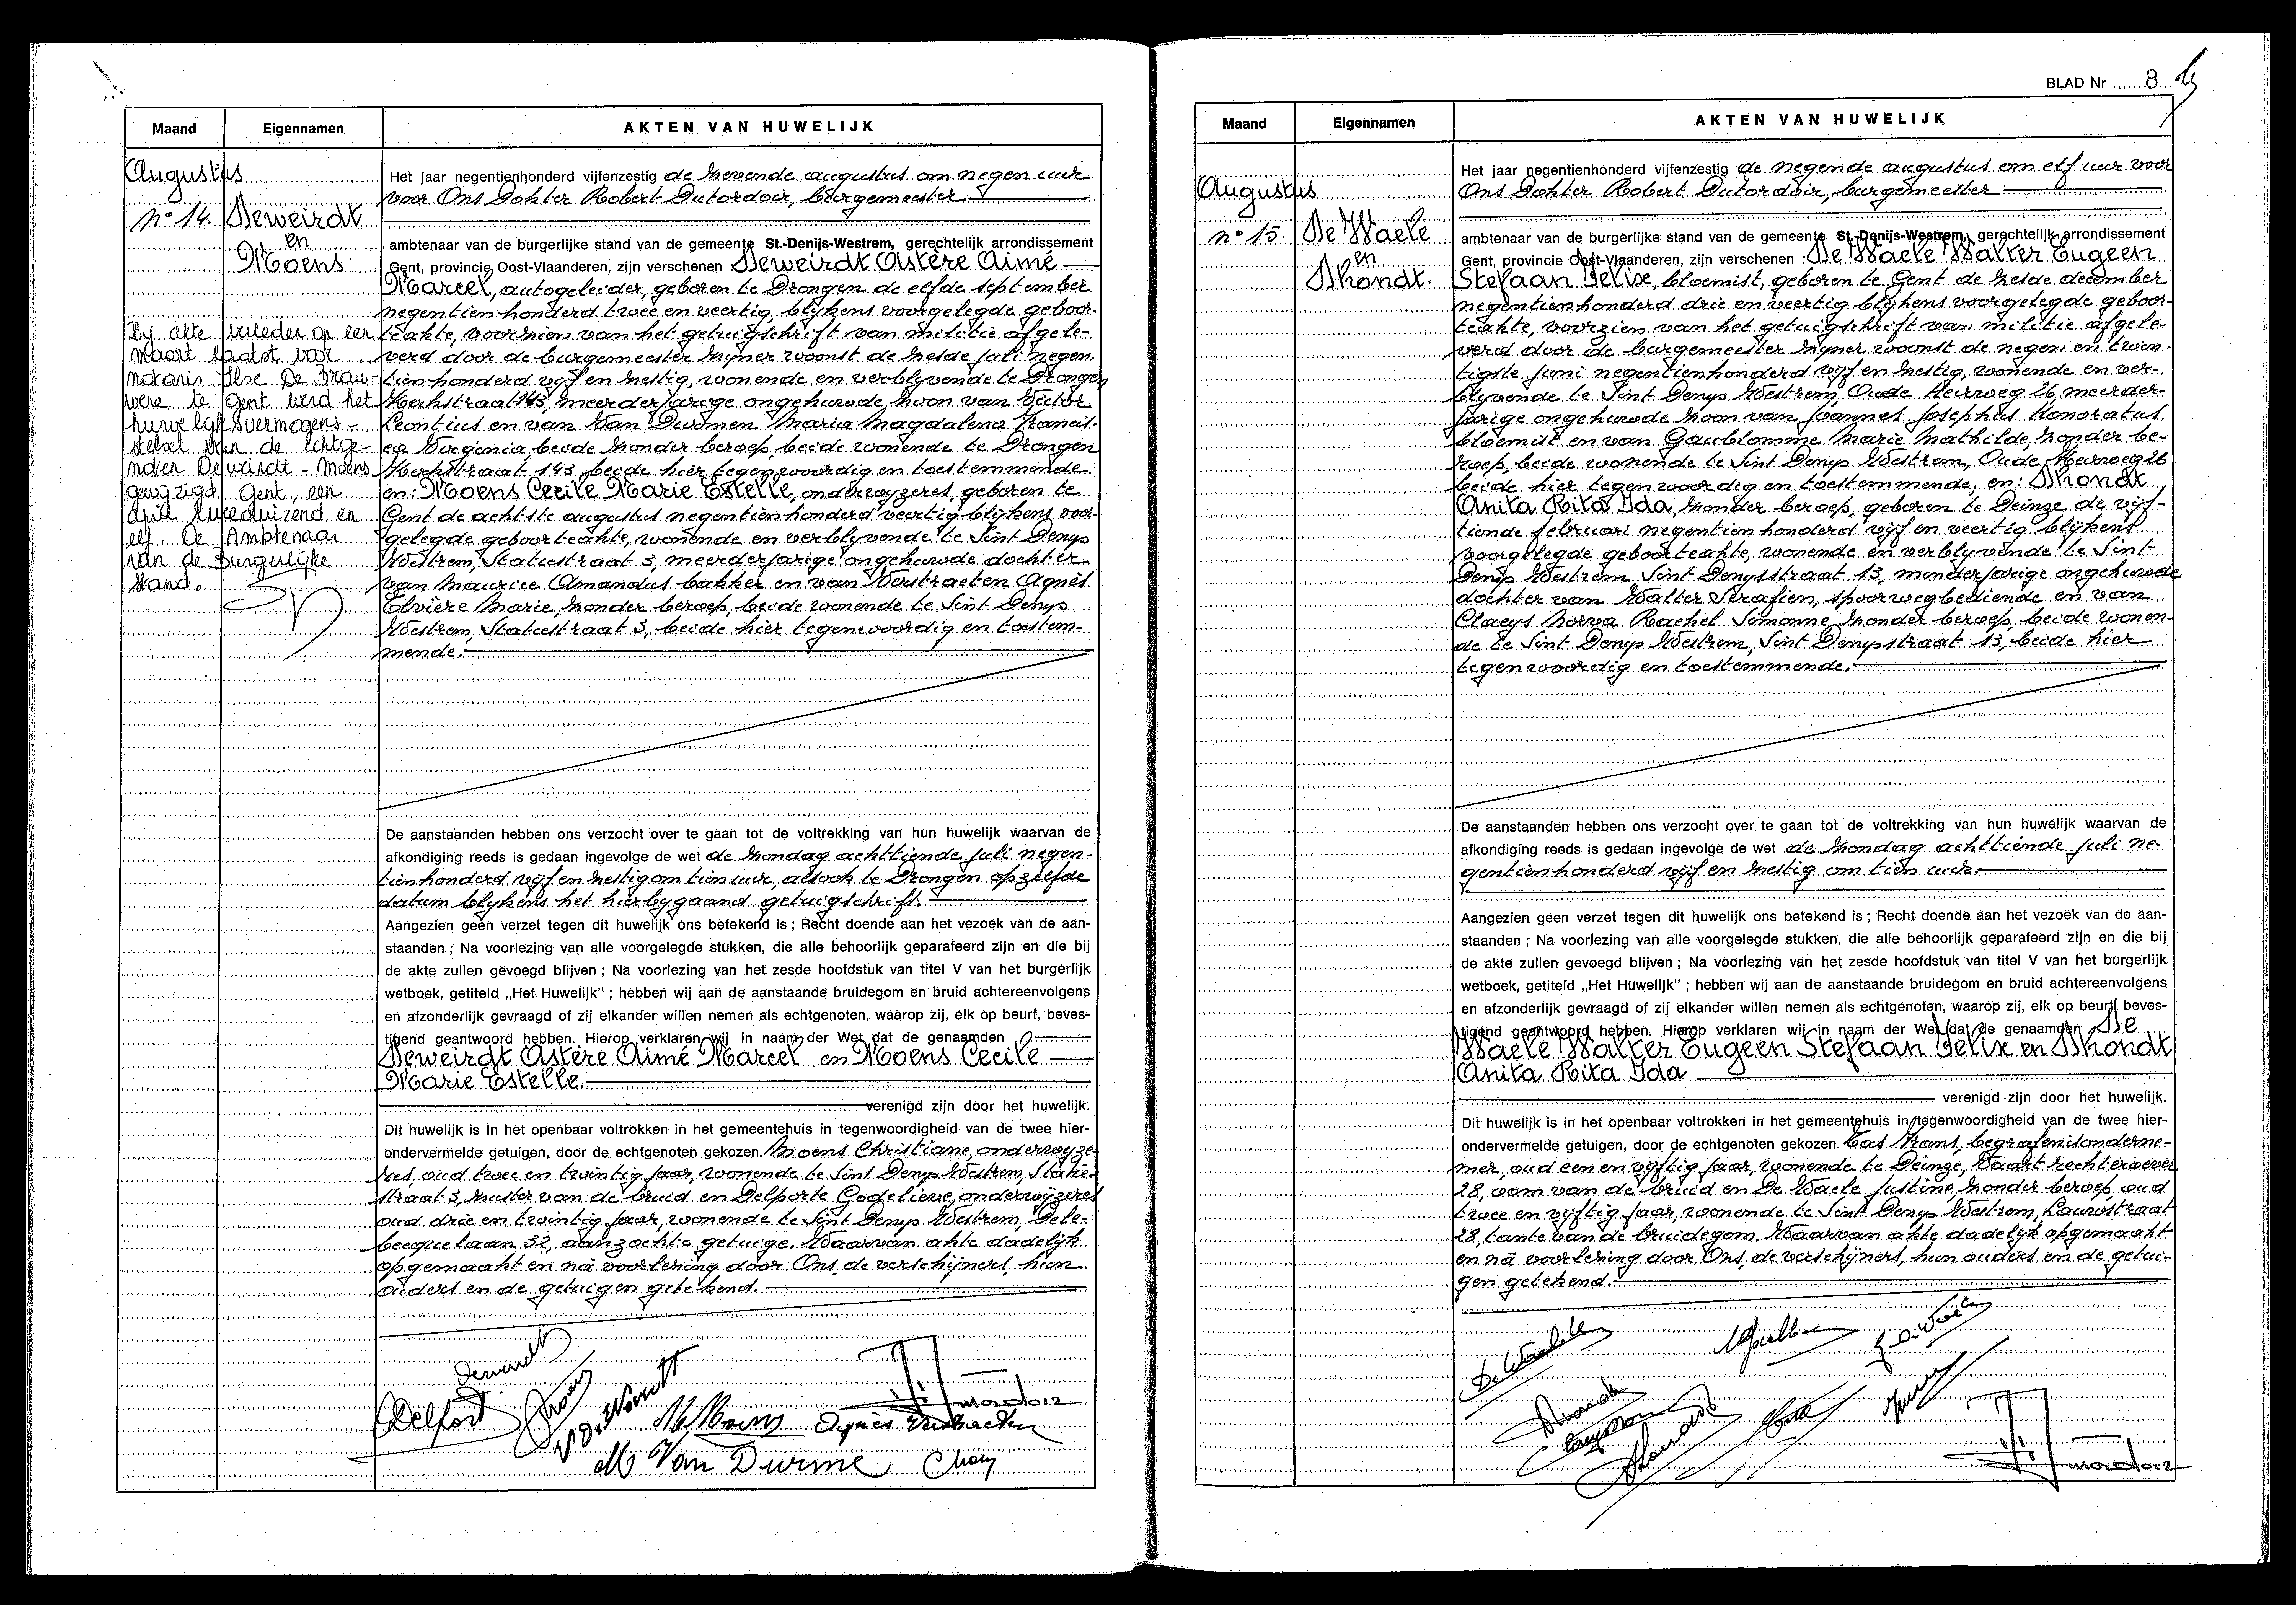 Maand
Eigennamen
AKTEN VAN HUWELIJK
Augustus
n° 14.
Deweirdt
en
Moens
Bij akte verleden op een
maart laatst voor
notaris Ilse De Brau-
were te Gent werd het
huwelijksvermogens-
stelsel van de echtge-
noten Deweirdt - Moens
gewijzigd. Gent, een
april tweeduizend en
elf. De Ambtenaar
van de Burgerlijke
stand.
Het jaar negentienhonderd vijfenzestig de zevende augustus om negen uur
voor Ons Dokter Robert Dutordoir, burgemeester
ambtenaar van de burgerlijke stand van de gemeente St.-Denijs-Westrem, gerechtelijk arrondissement
Gent, provincie Oost-Vlaanderen, zijn verschenen Deweirdt Astère Aimé
Marcel, autogeleider, geboren te Drongen de elfde september
negentien honderd twee en veertig, blijkens voorgelegde geboor-
teakte, voorzien van het getuigschrift van militie afgele-
verd door de burgemeester zijner woonst de zesde juli negen-
tien honderd vijf en zestig, wonende en verblyvende te Drongen
Kerkstraat 143, meerderjarige ongehuwde zoon van Victor
Leontius en van Van Durmen Maria Magdalena Francis-
ca Virginia, beide zonder beroep, beide wonende te Drongen
Kerkstraat 143, beide hier tegenwoordig en toestemmende
en: Moens Cecile Marie Estelle, onderwyzeres, geboren te
Gent de achtste augustus negentien honderd veertig blijkens voor-
gelegde geboorteakte, wonende en verblyvende te Sint Denys
Westrem, Statiestraat 3, meerderjarige ongehuwde dochter
van Maurice Amandus bakker en van Verstraeten Agnès
Elvière Marie, zonder beroep, beide wonende te Sint Denys
Westrem, Statiestraat 3, beide hier tegenwoordig en toestem-
mende.
De aanstaanden hebben ons verzocht over te gaan tot de voltrekking van hun huwelijk waarvan de
afkondiging reeds is gedaan ingevolge de wet de zondag achttiende juli negen-
tienhonderd vijf en zestig om tien uur, alsook te Drongen op zelfde
datum blykens het hierbygaand getuigschrift.
Aangezien geen verzet tegen dit huwelijk ons betekend is ; Recht doende aan het vezoek van de aan-
staanden ; Na voorlezing van alle voorgelegde stukken, die alle behoorlijk geparafeerd zijn en die bij
de akte zullen gevoegd blijven ; Na voorlezing van het zesde hoofdstuk van titel V van het burgerlijk
wetboek, getiteld „Het Huwelijk" ; hebben wij aan de aanstaande bruidegom en bruid achtereenvolgens
en afzonderlijk gevraagd of zij elkander willen nemen als echtgenoten, waarop zij, elk op beurt, beves-
tigend geantwoord hebben. Hierop verklaren wij in naam der Wet dat de genaamden
Deweirdt Astère Aimé Marcel en Moens Cecile
Marie Estelle.
verenigd zijn door het huwelijk.
Dit huwelijk is in het openbaar voltrokken in het gemeentehuis in tegenwoordigheid van de twee hier-
ondervermelde getuigen, door de echtgenoten gekozen. Moens Christiane, onderwyze-
res, oud twee en twintig jaar, wonende te Sint Denys Westrem, Statie-
straat 3, zuster van de bruid en Delporte Godelieve, onderwyzeres
oud drie en twintig jaar, wonende te Sint Denys Westrem, Dele-
becquelaan 32, aanzochte getuige. Waarvan akte dadelijk
opgemaakt en nà voorlezing door Ons, de verschijners, hun
ouders en de getuigen getekend.
M Van Durme
BLAD Nr 8
Maand
Eigennamen
AKTEN VAN HUWELIJK
Augustus
n° 15.
De Waele
en
Dhondt.
Het jaar negentienhonderd vijfenzestig de negende augustus om elf uur voor
Ons Dokter Robert Dutordoir, burgemeester
ambtenaar van de burgerlijke stand van de gemeente St.-Denijs-Westrem, gerechtelijk arrondissement
Gent, provincie Oost-Vlaanderen, zijn verschenen : De Waele Walter Eugeen
Stefaan Felix, bloemist, geboren te Gent de zesde december
negentienhonderd drie en veertig blijkens voorgelegde geboor-
teakte, voorzien van het getuigschrift van militie afgele-
verd door de burgemeester zijner woonst de negen en twin-
tigste juni negentienhonderd vijf en zestig, wonende en ver-
blyvende te Sint Denys Westrem, Oude Heirweg 26, meerder-
jarige ongehuwde zoon van Joannes Josephus Honoratus
bloemist en van Gaublomme Marie Mathilde, zonder be-
roep, beide wonende te Sint Denys Westrem, Oude Heirweg 26
beide hier tegenwoordig en toestemmende, en: Dhondt
Anita Rita Ida, zonder beroep, geboren te Deinze de vijf-
tiende februari negentien honderd vijf en veertig blijkens
voorgelegde geboorteakte, wonende en verblyvende te Sint-
Denys Westrem, Sint Denysstraat 13, minderjarige ongehuwde
dochter van Walter Serafien, spoorwegbediende en van
Claeys Rachel Simonne, zonder beroep, beide wonen-
de te Sint Denys Westrem, Sint Denysstraat 13, beide hier
tegenwoordig en toestemmende.
De aanstaanden hebben ons verzocht over te gaan tot de voltrekking van hun huwelijk waarvan de
afkondiging reeds is gedaan ingevolge de wet de zondag achttiende juli ne-
gentienhonderd vijf en zestig om tien uur.
Aangezien geen verzet tegen dit huwelijk ons betekend is ; Recht doende aan het vezoek van de aan-
staanden ; Na voorlezing van alle voorgelegde stukken, die alle behoorlijk geparafeerd zijn en die bij
de akte zullen gevoegd blijven ; Na voorlezing van het zesde hoofdstuk van titel V van het burgerlijk
wetboek, getiteld „Het Huwelijk" ; hebben wij aan de aanstaande bruidegom en bruid achtereenvolgens
en afzonderlijk gevraagd of zij elkander willen nemen als echtgenoten, waarop zij, elk op beurt, beves-
tigend geantwoord hebben. Hierop verklaren wij in naam der Wet dat de genaamden De
Waele Walter Eugeen Stefaan Felix en Dhondt
Anita Rita Ida
verenigd zijn door het huwelijk.
Dit huwelijk is in het openbaar voltrokken in het gemeentehuis in tegenwoordigheid van de twee hier-
ondervermelde getuigen, door de echtgenoten gekozen. Cas Frans, begrafenisonderne-
mer, oud een en vijftig jaar, wonende te Deinze, Vaart rechteroever
28, oom van de bruid en De Waele Justine, zonder beroep, oud
twee en vijftig jaar, wonende te Sint Denys Westrem, Lauwstraat
28, tante van de bruidegom. Waarvan akte dadelijk opgemaakt
en nà voorlezing door Ons, de verschijners, hun ouders en de getui-
gen getekend.